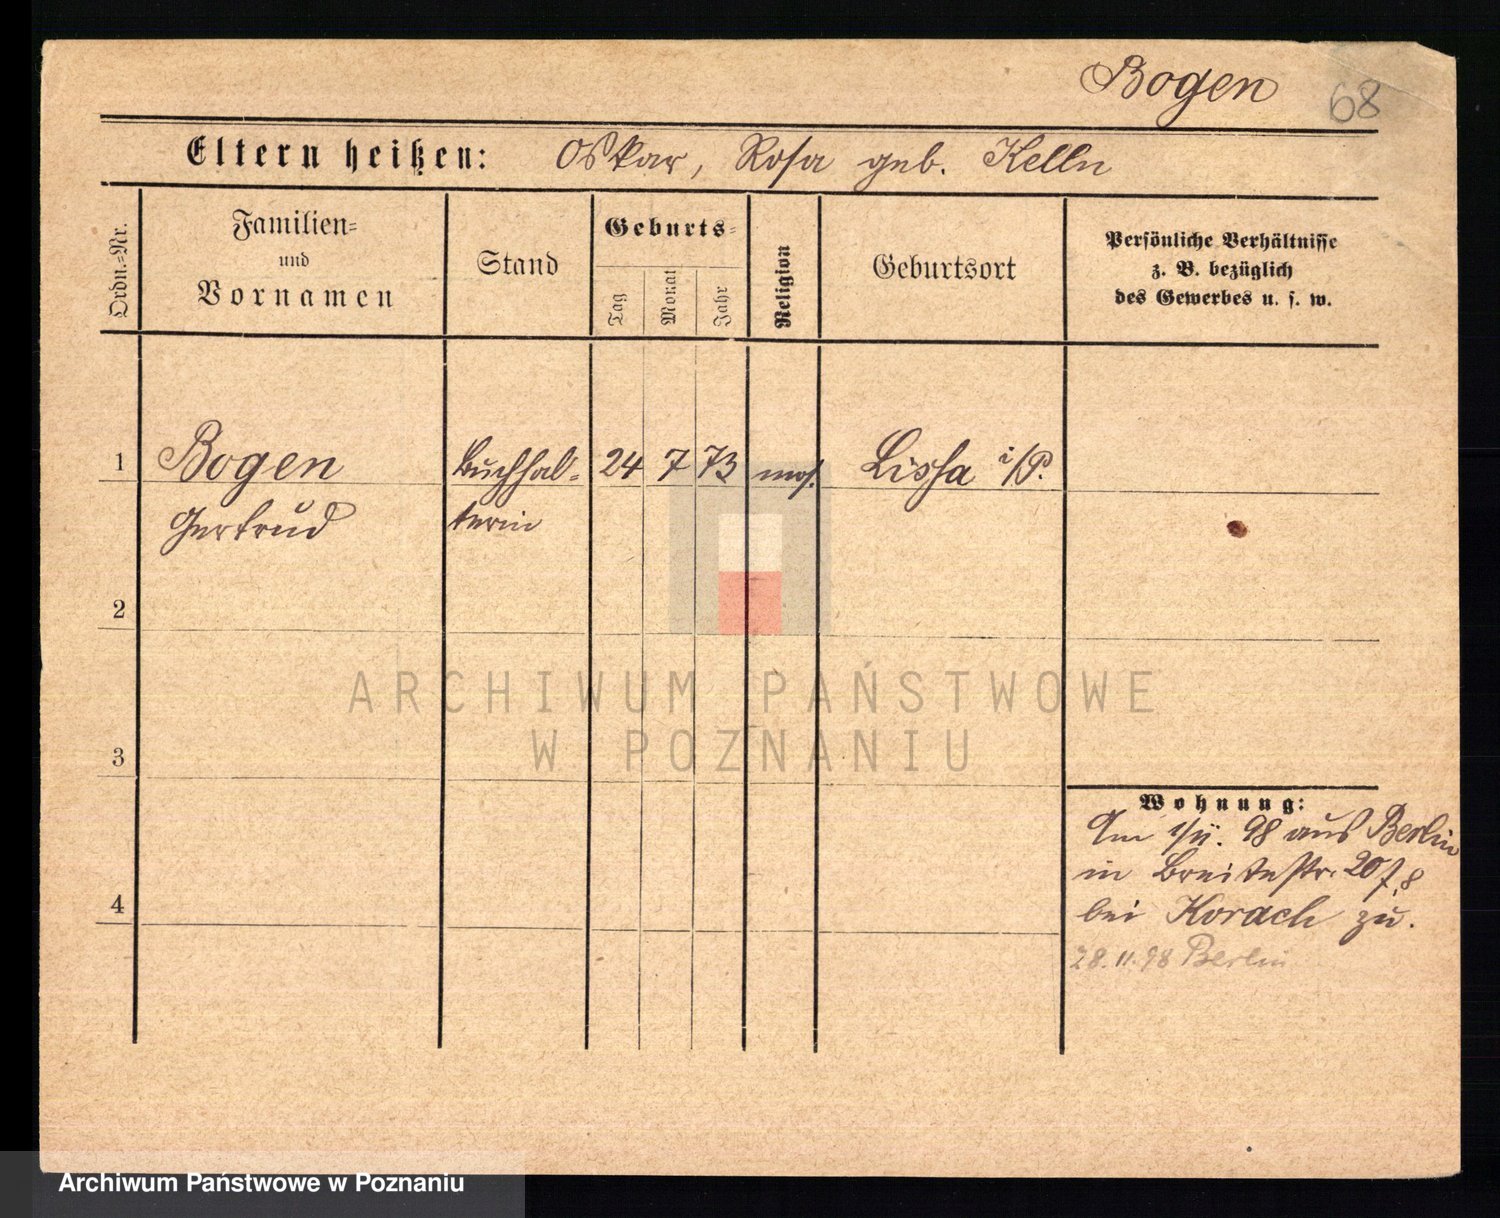 Bogen 68
Eltern heißen: Oskar, Rosa geb. Kelln
Ordn.-Nr.
Familien-
und
Vornamen
Stand
Geburts-
Tag
Monat
Jahr
Religion
Geburtsort
Persönliche Verhältnisse
z. B. bezüglich
des Gewerbes u. s. w.
1 Bogen Buchhal- 24 7 73 mos. Lissa i/P.
Gertrud terin
2
3
4
Wohnung:
Am 98 aus Berlin
in Breitestr. 20
bei Korach zu.
28.11.98 Berlin
ARCHIWUM PAŃSTWOWE
W POZNANIU
Archiwum Państwowe w Poznaniu